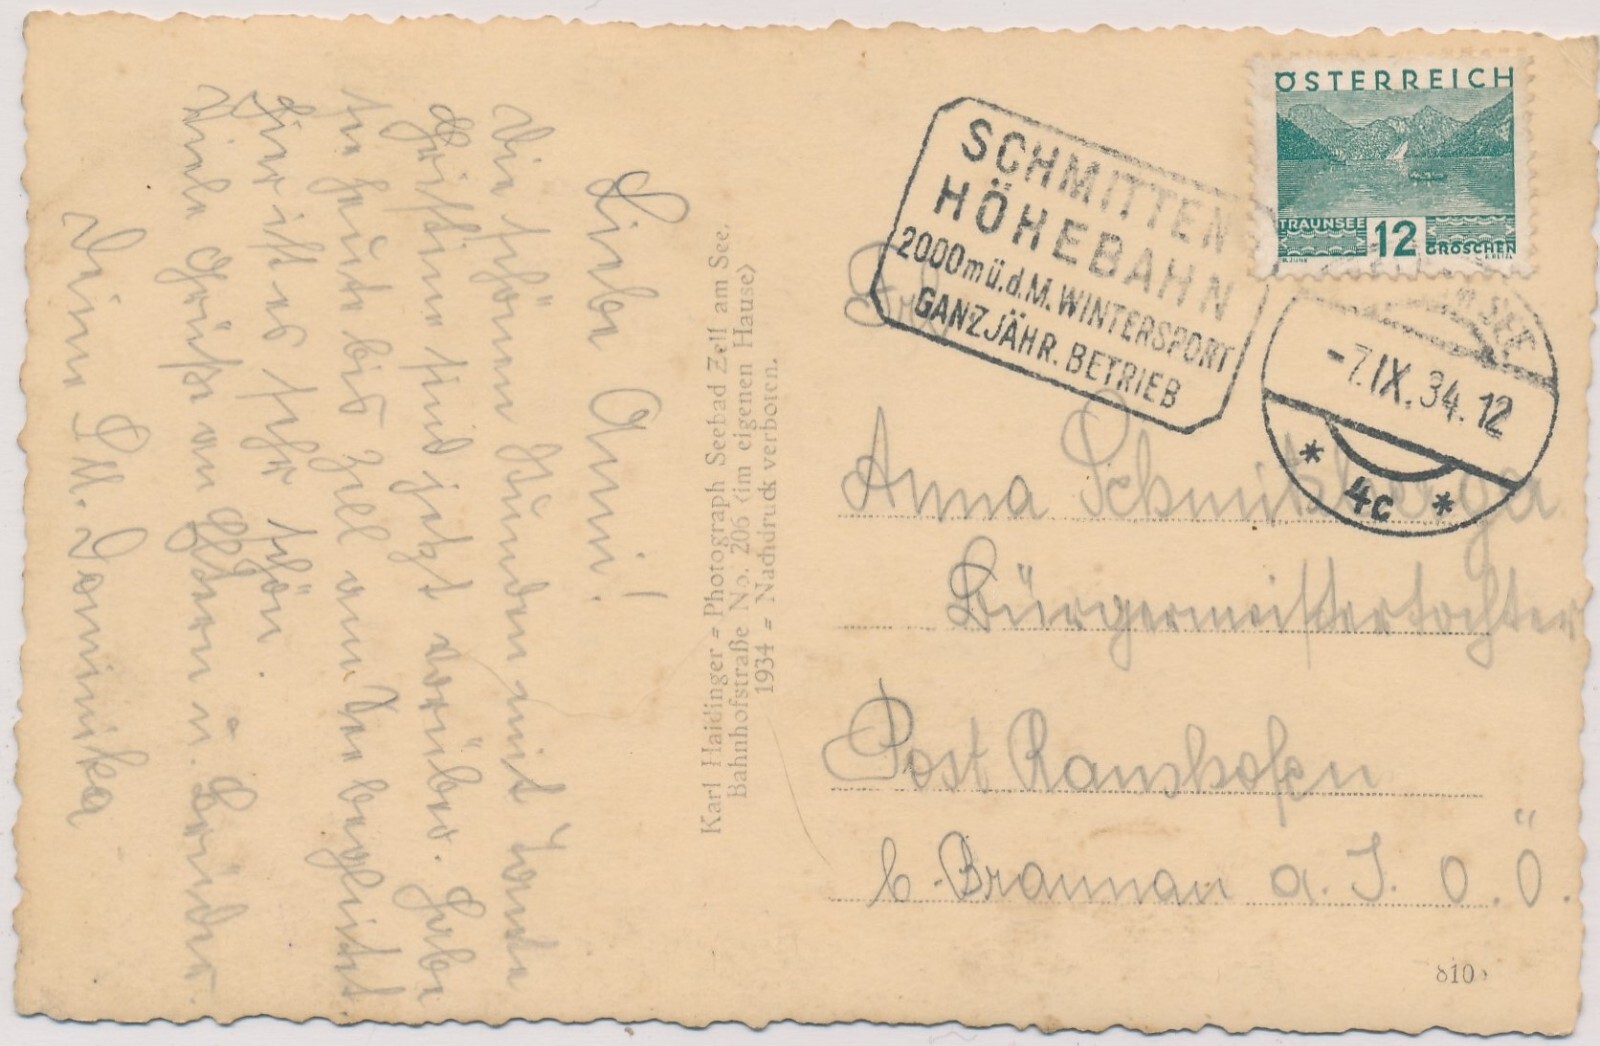 Liebe Anni!
Die schönen Stunden mit Tante
Christine sind jetzt vorüber. Habe
sie heute bis Zell am See begleitet
Hier ist es sehr schön.
Viele Grüße an Eltern u. Brüder.
Deine Sr. Dominika
Karl Haidinger = Photograph Seebad Zell am See.
Bahnhofstraße No. 206 (im eigenen Hause)
1934 = Nachdruck verboten.
ÖSTERREICH
TRAUNSEE 12 GROSCHEN
SCHMITTEN
HÖHEBAHN
2000 m ü.d.M. WINTERSPORT
GANZJÄHR. BETRIEB
-7.IX.34.12
* 4c *
Frl.
Anna Schmitzberger
Bürgermeisterstochter
Post Ranshofen
b. Braunau a. I. O.Ö.